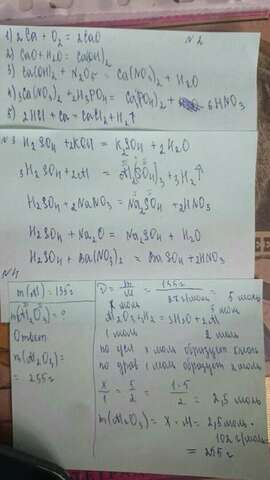 №2
1) 2Ca + O₂ = 2CaO
2) CaO + H₂O = Ca(OH)₂
3) Ca(OH)₂ + N₂O₅ = Ca(NO₃)₂ + H₂O
4) 3Ca(NO₃)₂ + 2H₃PO₄ = Ca₃(PO₄)₂ + 6HNO₃
5) 2HCl + Ca = CaCl₂ + H₂↑
№3 H₂SO₄ + 2KOH = K₂SO₄ + 2H₂O
3H₂SO₄ + 2Al = Al₂(SO₄)₃ + 3H₂↑
H₂SO₄ + 2NaNO₃ = Na₂SO₄ + 2HNO₃
H₂SO₄ + Na₂O = Na₂SO₄ + H₂O
H₂SO₄ + Ba(NO₃)₂ = BaSO₄ + 2HNO₃
№4
m(Al) = 135г
m(Al₂O₃) = ?
Ответ:
m(Al₂O₃) =
= 255г
= m/M = 135г / 27г/моль = 5 моль
x моль 5 моль
Al₂O₃ + H₂ = 3H₂O + 2Al
1 моль 2 моль
по усл x моль образует 5 моль
по урав 1 моль образует 2 моль
x/1 = 5/2 = 1·5/2 = 2,5 моль
m(Al₂O₃) = x · M = 2,5 моль ·
102 г/моль
= 255г